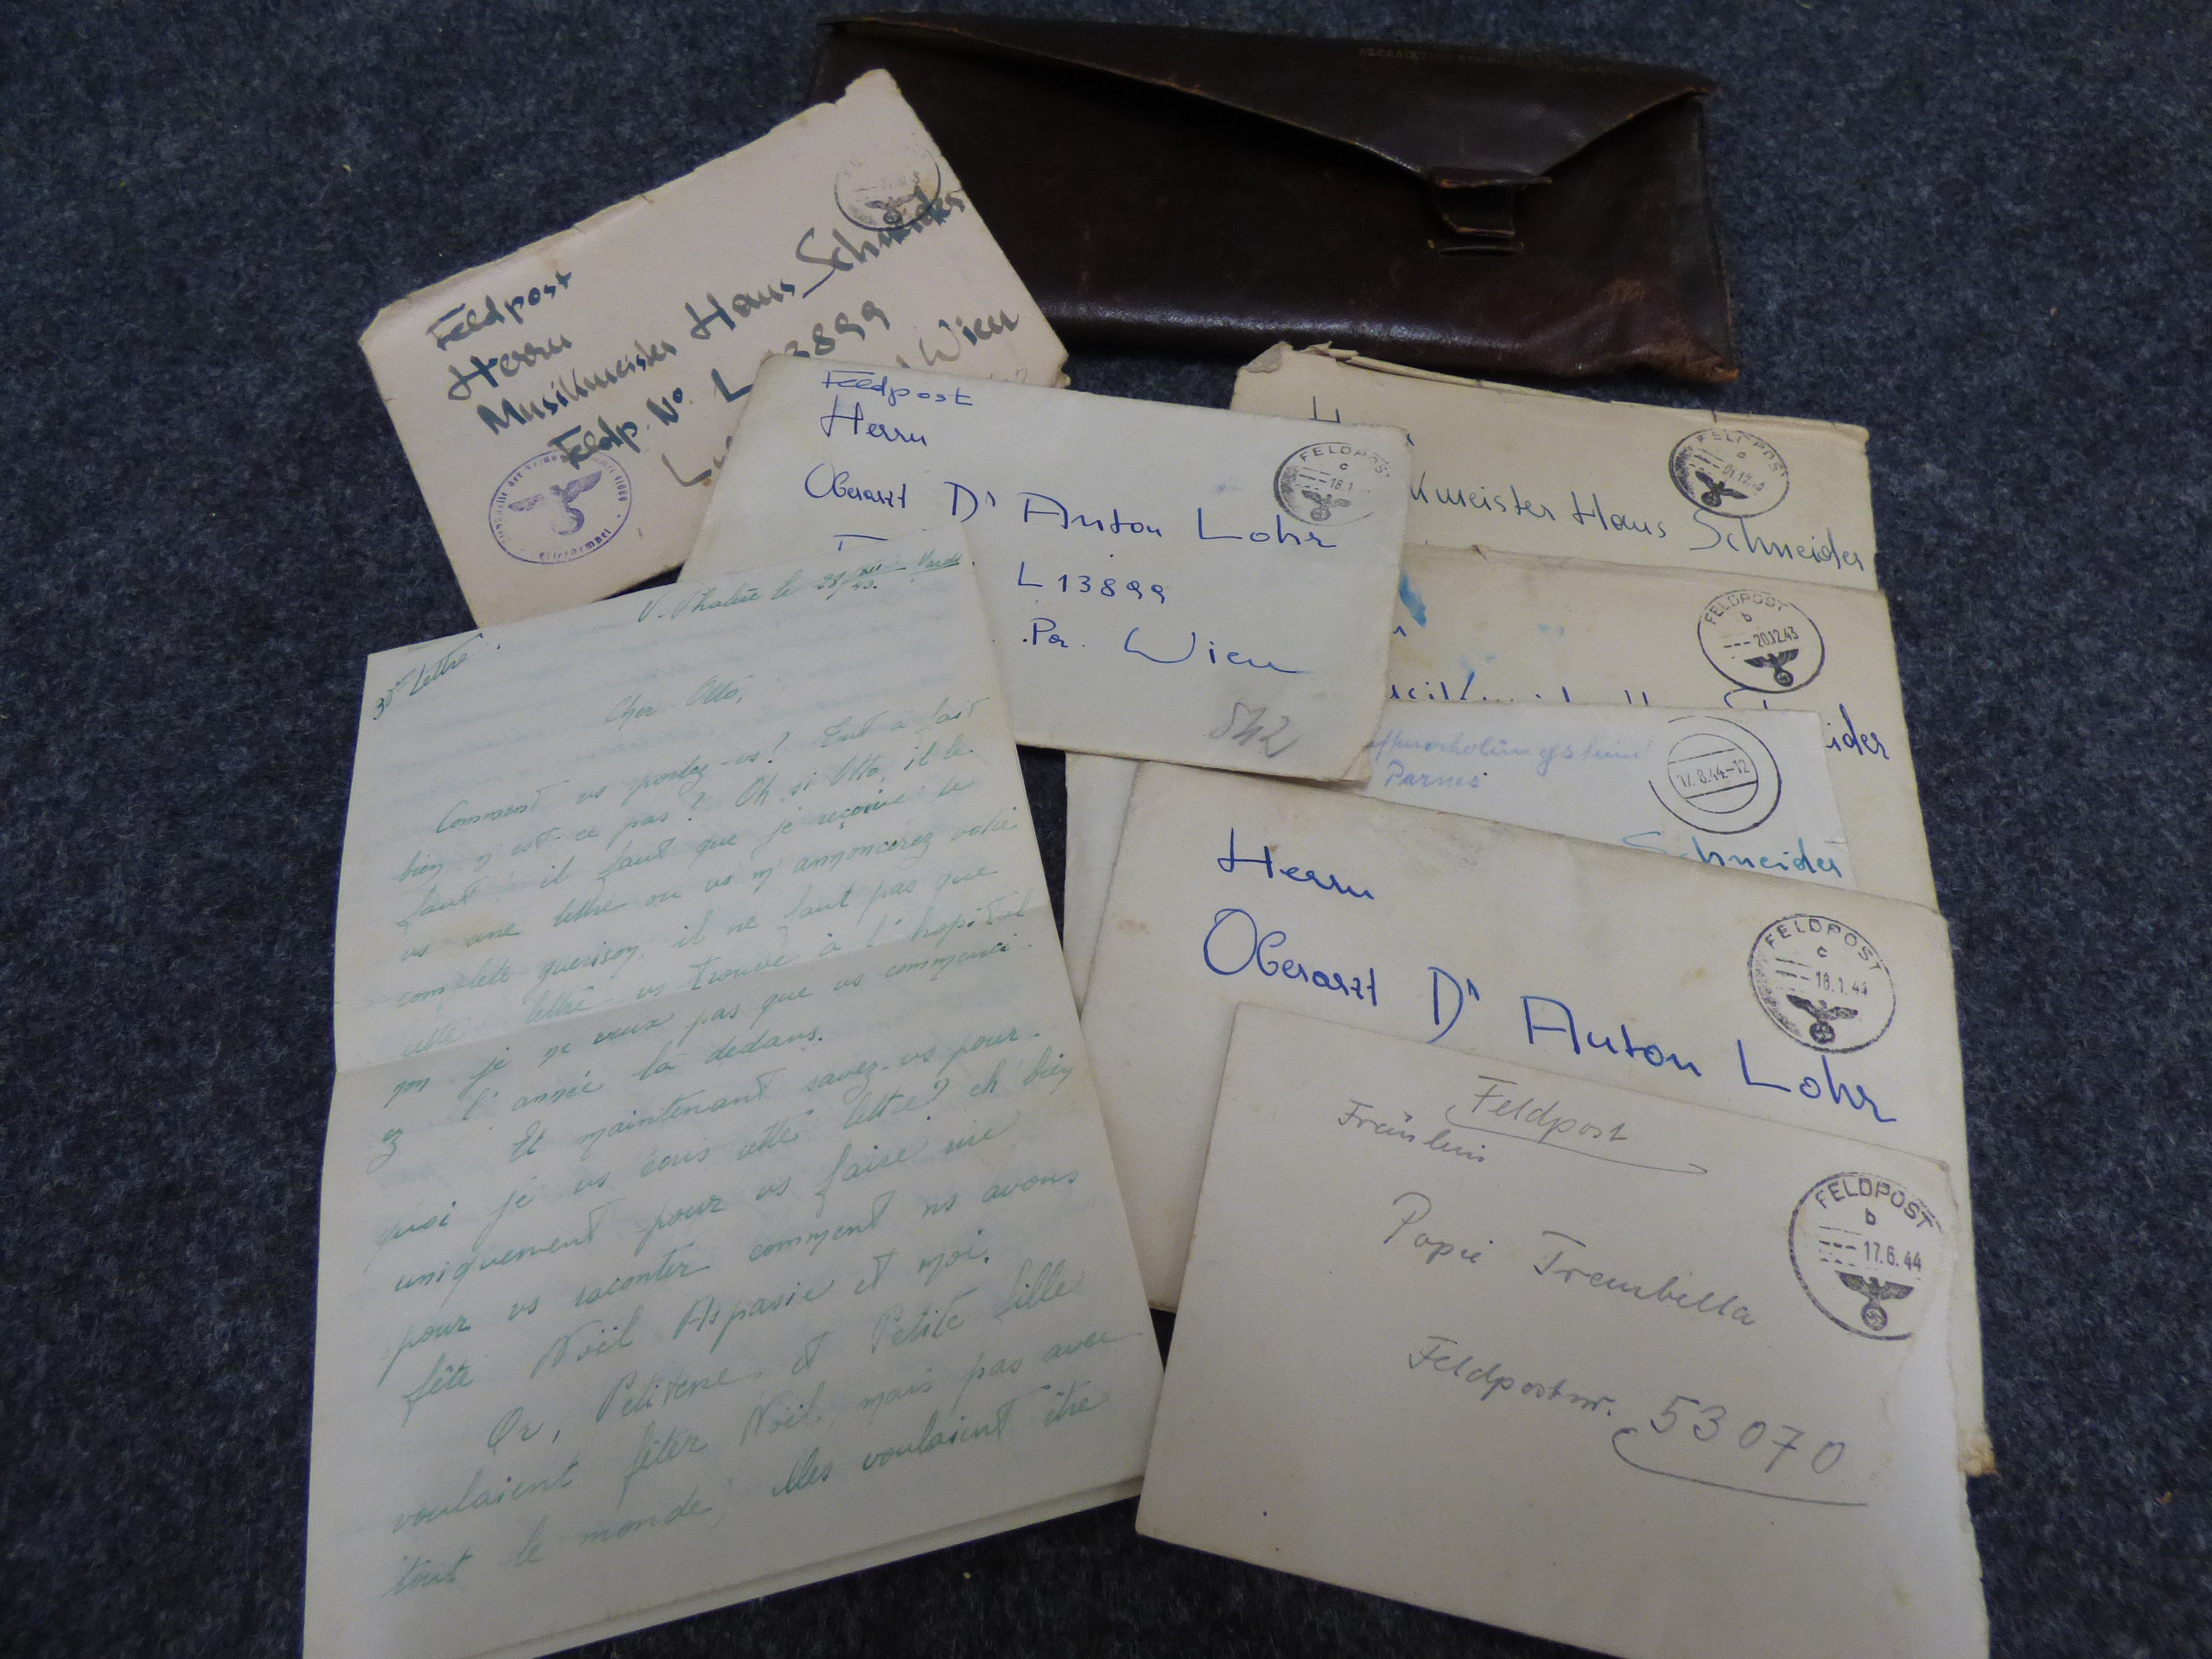 Feldpost
Herrn
Musikmeister Hans Schneider
Feldp. No. L 13899
Wien
Feldpost
Herrn
Oberarzt Dr Anton Lohr
L 13899
Wien
842
FELDPOST
c
18.1
kmeister Hans Schneider
FELDPOST
c
FELDPOST
b
20.12.43
ider
Parnes
17.8.44-12
Schneider
Herrn
Oberarzt Dr Anton Lohr
FELDPOST
c
18.1.44
Feldpost
Fräulein
Popie
Feldpostnr. 53070
FELDPOST
b
17.6.44
Lettre
le 28/XII 43.
Cher Otto,
Comment vs portez-vs? Tout à fait
bien n'est-ce pas? Oh si Otto, il le
faut! il faut que je reçoive de
vs une lettre ou vs m'annoncerez votre
complète guerison, il ne faut pas que
cette lettre vs trouve à l'hopital
je ne veux pas que vs commenci-
ez l'année là dedans.
Et maintenant savez-vs pour-
quoi je vs écris cette lettre? eh bien
uniquement pour vs faire rire
pour vs raconter comment ns avons
fêté Noël Aspasie et moi.
Or, et Petite fille
voulaient fêter Noël, mais pas avec
tout le monde, elles voulaient être